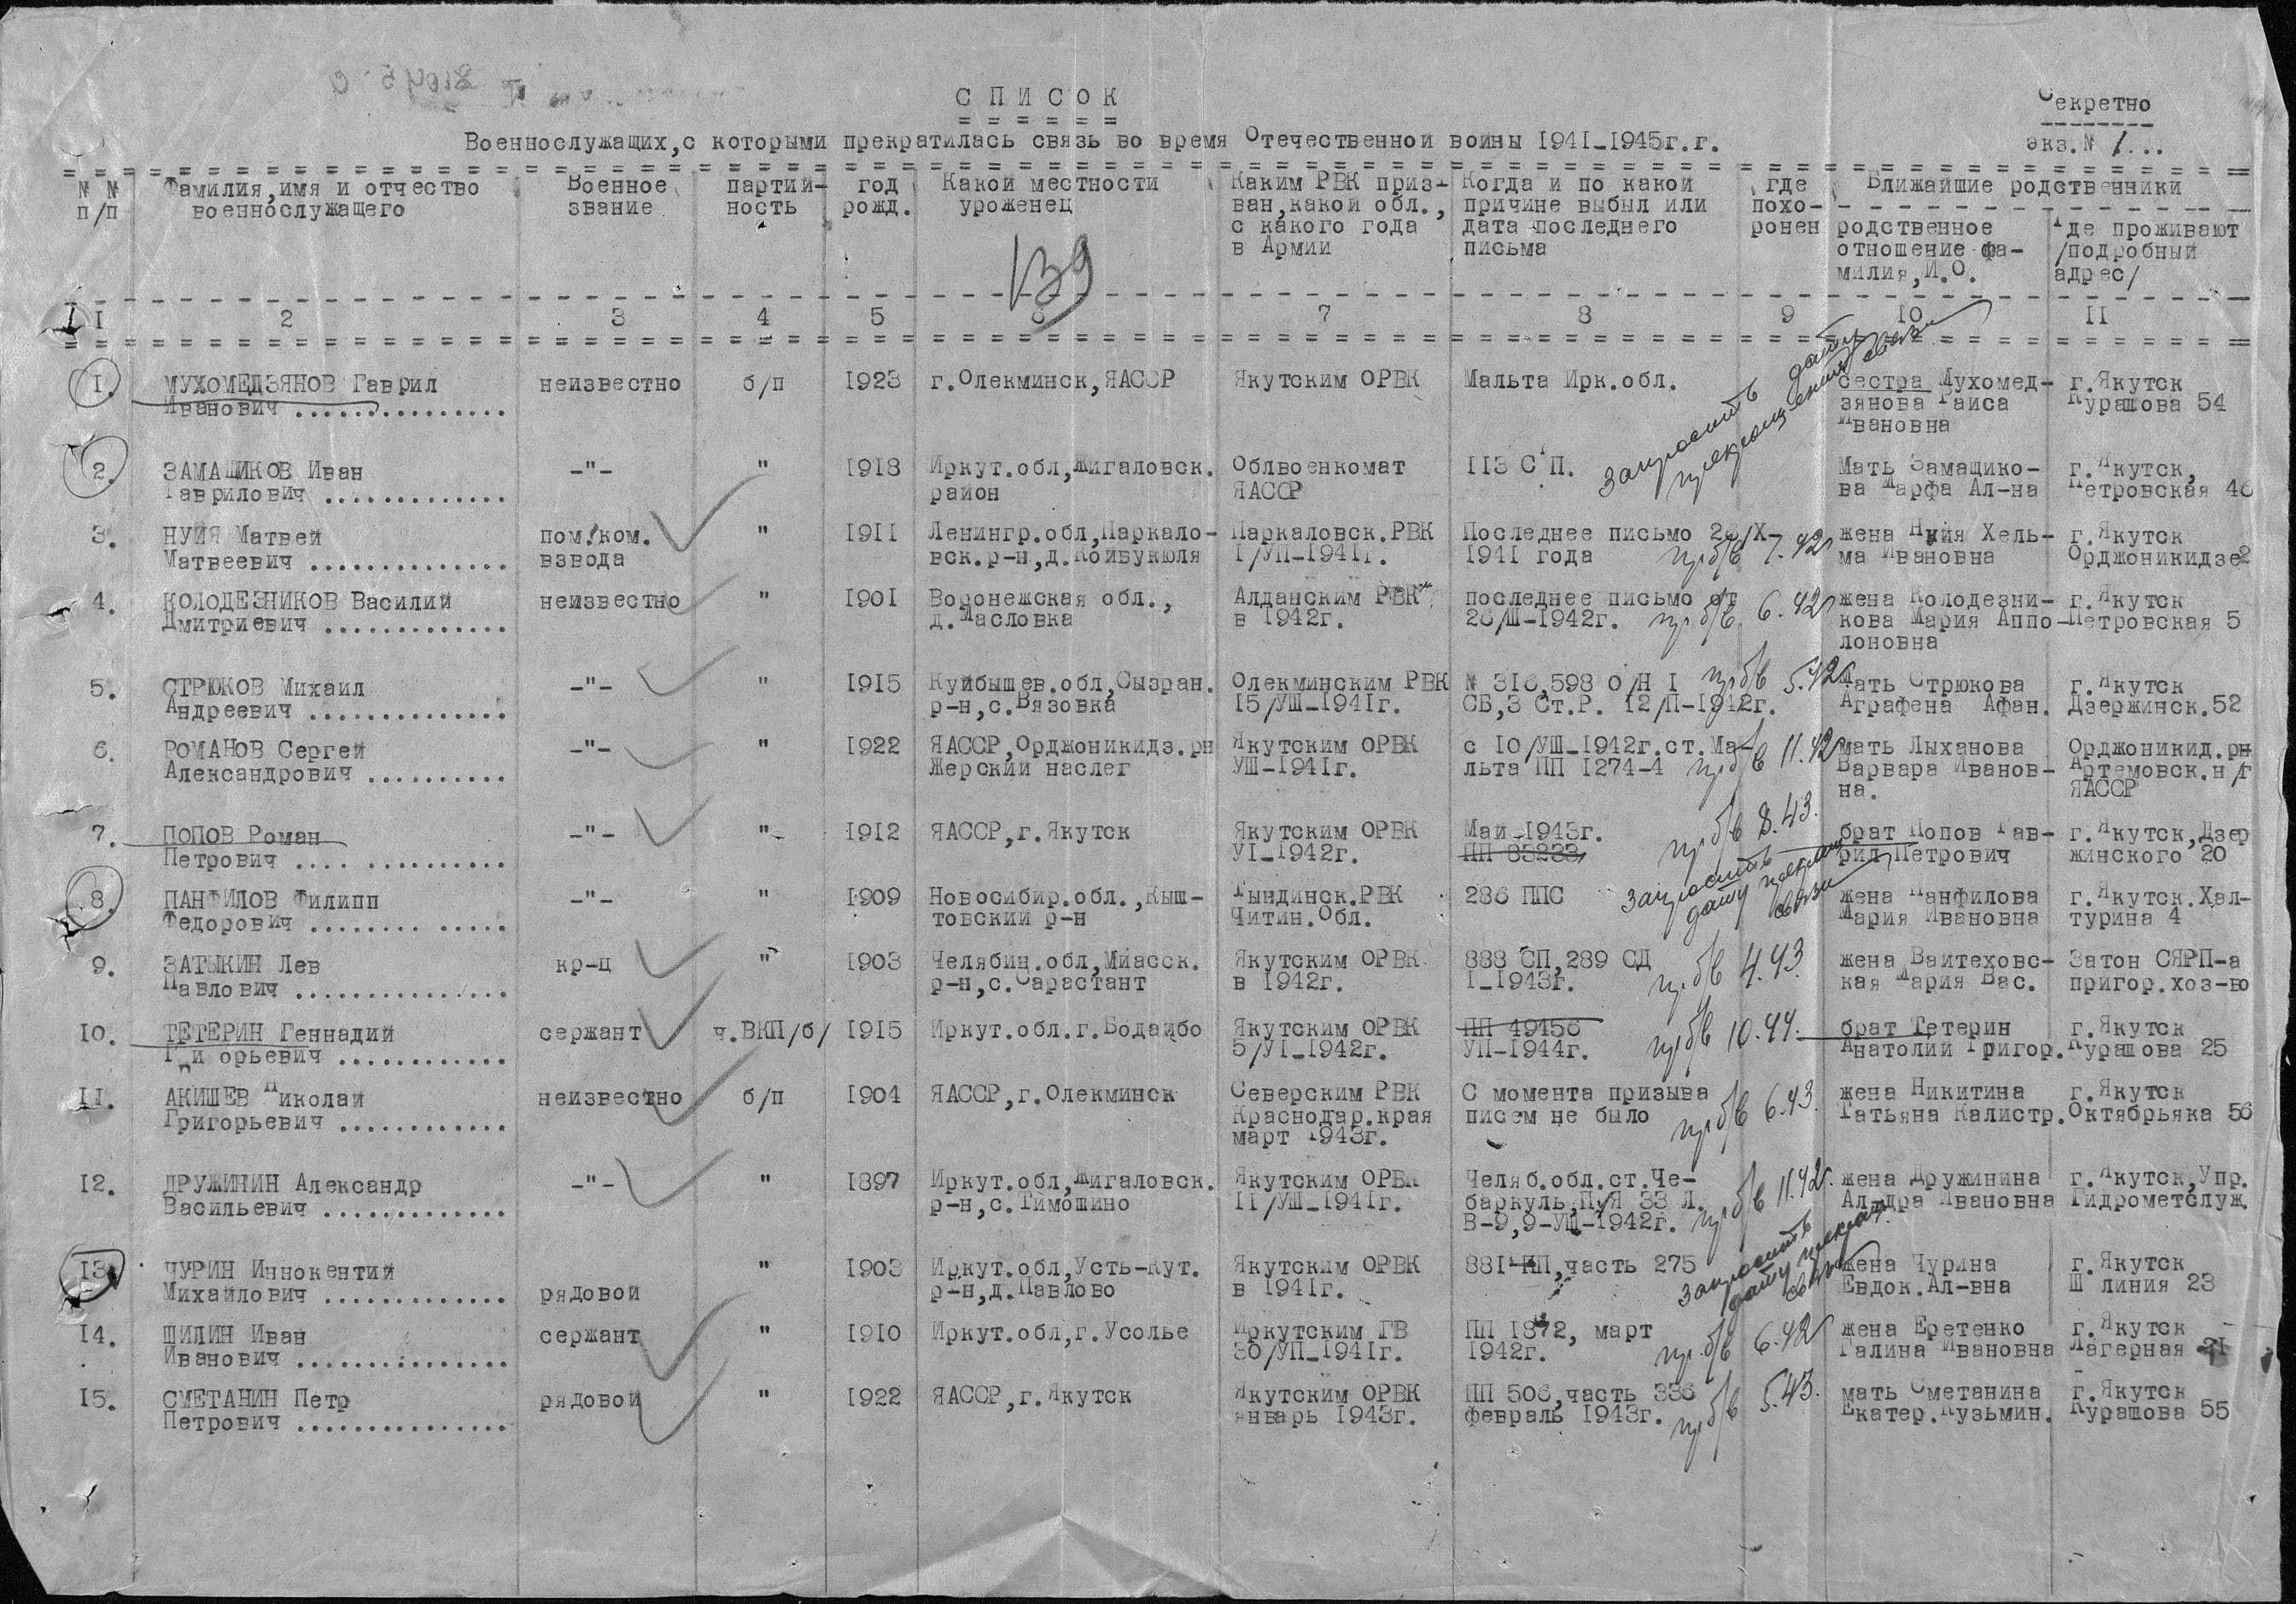 СПИСОК
Секретно
Военнослужащих,с которыми прекратилась связь во время Отечественной войны 1941-1945г.г.
экз.№ 1...
№ № Фамилия,имя и отчество Военное партий- год Какой местности Каким РВК приз- Когда и по какой где Ближайшие родственники
п/п военнослужащего звание ность рожд. уроженец ван,какой обл., причине выбыл или похо-
с какого года дата последнего ронен родственное Где проживают
в Армии письма отношение фа- /подробный
милия,И.О. адрес/
139
I 2 3 4 5 6 7 8 9 10 II
I. МУХОМЕДЗЯНОВ Гаврил неизвестно б/п 1923 г.Олекминск,ЯАССР Якутским ОРВК Мальта Ирк.обл. запросить дату сестра Мухомед- г.Якутск
Иванович ................ прекращения связи зянова Раиса Курашова 54
Ивановна
2. ЗАМАЩИКОВ Иван -"- " 1918 Иркут.обл,Жигаловск. Облвоенкомат 113 СП. Мать Замащико- г.Якутск,
Гаврилович ............. район ЯАССР ва Марфа Ал-на Петровская 46
3. НУЙЯ Матвей пом.ком. " 1911 Ленингр.обл,Паркало- Паркаловск.РВК Последнее письмо 26/Х- жена Нуйя Хель- г.Якутск
Матвеевич .............. взвода вск.р-н,д.Койвукюля I/УП-1941г. 1941 года пр б/в 1.42г ма Ивановна Орджоникидзе2
4. КОЛОДЕЗНИКОВ Василий неизвестно " 1901 Воронежская обл., Алданским РВК последнее письмо от жена Колодезни- г.Якутск
Дмитриевич ............. д.Масловка в 1942г. 26/Ш-1942г. пр б/в 6.42г кова Мария Аппо- Петровская 5
лоновна
5. СТРЮКОВ Михаил -"- " 1915 Куйбышев.обл,Сызран. Олекминским РВК № 316,598 О/Н I пр б/в 5.42г Мать Стрюкова г.Якутск
Андреевич .............. р-н,с.Вязовка 15/УШ-1941г. СБ,3 Ст.Р. 12/П-1942г. Аграфена Афан. Дзержинск.52
6. РОМАНОВ Сергей -"- " 1922 ЯАССР,Орджоникидз.рн Якутским ОРВК с 10/УШ-1942г.ст.Ма- мать Лыханова Орджоникид.рн
Александрович .......... Жерский наслег УШ-1941г. льта ПП 1274-4 пр б/в 11.42г Варвара Иванов- Артемовск.н/г
на. ЯАССР
7. ПОПОВ Роман -"- " 1912 ЯАССР,г.Якутск Якутским ОРВК Май 1943г. пр б/в 8.43. брат Попов Гав- г.Якутск,Дзер
Петрович .... .......... УI-1942г. ПП 85233 рил Петрович жинского 20
8. ПАНФИЛОВ Филипп -"- " 1909 Новосибир.обл.,Кыш- Тындинск.РВК 286 ППС запросить жена Панфилова г.Якутск.Хал-
Федорович ........ ..... товский р-н Читин.Обл. дату прекращ связи Мария Ивановна турина 4
9. ЗАТЫКИН Лев кр-ц " 1903 Челябин.обл,Миасск. Якутским ОРВК 888 СП,289 СД жена Вайтеховс- Затон СЯРП-а
Павлович ............... р-н,с.Сарастант в 1942г. I-1943г. пр б/в 4.43. кая Мария Вас. пригор.хоз-во
10. ТЕТЕРИН Геннадий сержант ч.ВКП/б/ 1915 Иркут.обл.г.Бодайбо Якутским ОРВК ПП 49156 пр б/в 10.44. брат Тетерин г.Якутск
Григорьевич ............ 5/УI-1942г. УП-1944г. Анатолий Григор. Курашова 25
II. АКИШЕВ Николай неизвестно б/п 1904 ЯАССР,г.Олекминск Северским РВК С момента призыва жена Никитина г.Якутск
Григорьевич ............ Краснодар.края писем не было пр б/в 6.43. Татьяна Калистр. Октябрьяка 56
март 1943г.
12. ДРУЖИНИН Александр -"- " 1897 Иркут.обл,Жигаловск. Якутским ОРВК Челяб.обл.ст.Че- жена Дружинина г.Якутск,Упр.
Васильевич ............. р-н,с.Тимошино II/УШ-1941г. баркуль,П/Я 33 Л. Ал-дра Ивановна Гидрометслуж.
В-9,9-УШ-1942г. пр б/в 11.42г.
13. ЧУРИН Иннокентий " 1903 Иркут.обл,Усть-Кут. Якутским ОРВК 881 ПП,часть 275 запросить жена Чурина г.Якутск
Михайлович ............. рядовой р-н,д.Павлово в 1941г. дату прекращ. связи Евдок.Ал-вна Ш линия 23
14. ШИЛИН Иван сержант " 1910 Иркут.обл,г.Усолье Иркутским ГВ ПП 1872, март жена Еретенко г.Якутск
Иванович ............... 30/УП-1941г. 1942г. пр.б/в 6.42г Галина Ивановна Лагерная 21
15. СМЕТАНИН Петр рядовой " 1922 ЯАССР,г.Якутск Якутским ОРВК ПП 506,часть 336 мать Сметанина г.Якутск
Петрович ............... январь 1943г. февраль 1943г. пр б/в 5.43. Екатер.Кузьмин. Курашова 55